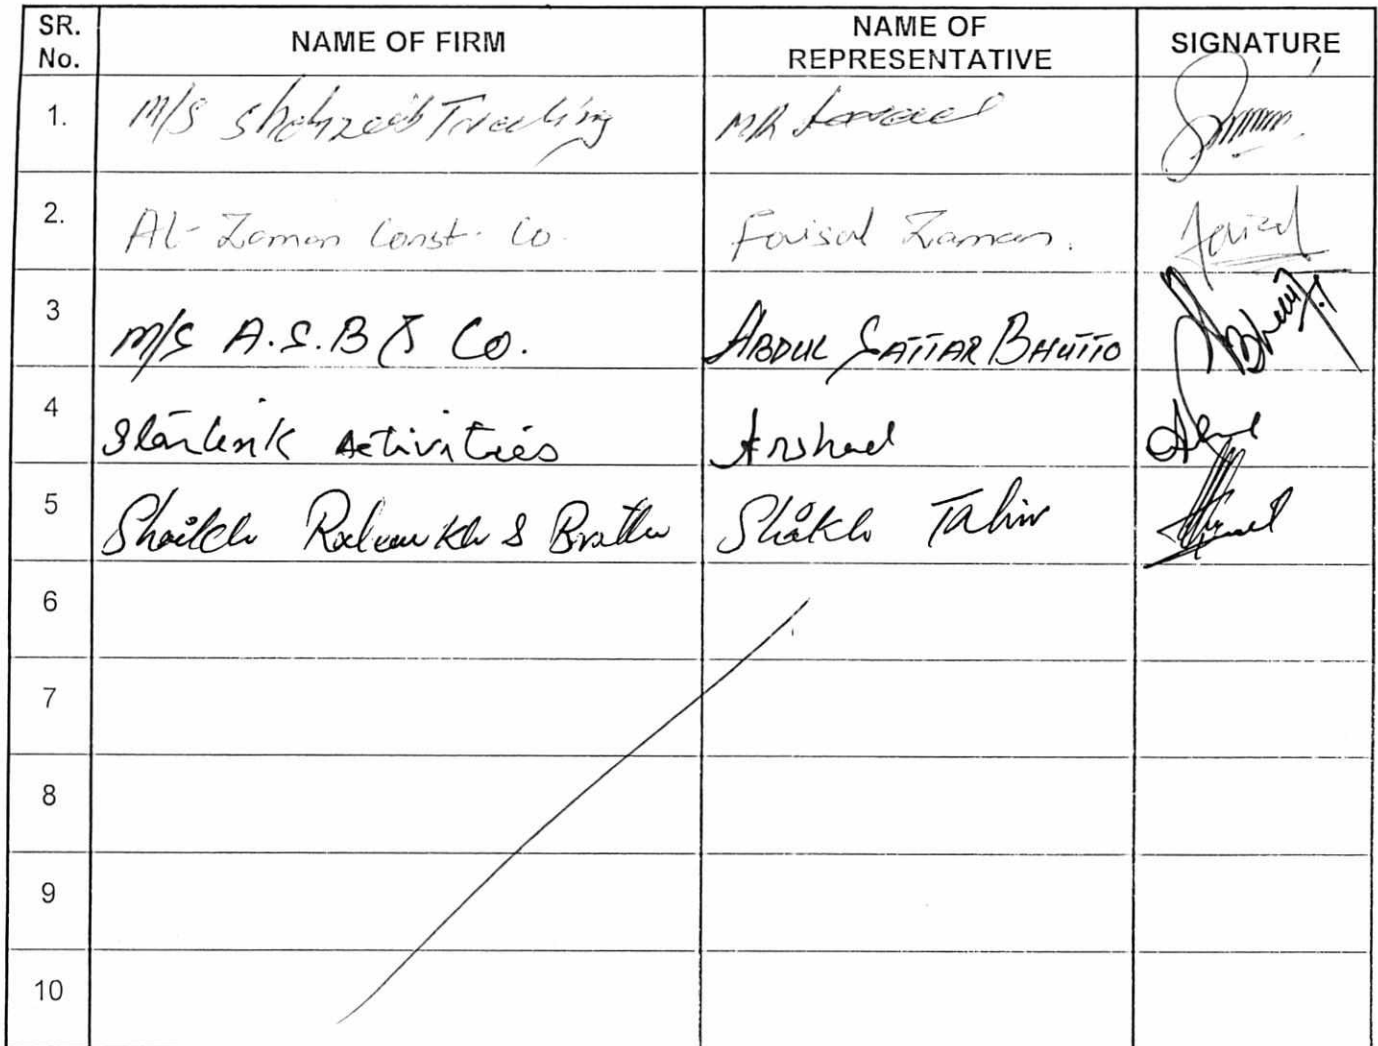 SR. No. NAME OF FIRM NAME OF REPRESENTATIVE SIGNATURE
1. M/S Shahzaib Trading MR
2. AL-Zaman Const. Co. Faisal Zaman.
3 M/S A.S.B & Co. ABDUL SATTAR BHUTTO
4 Starlink Activities Arshad
5 Shaikh & Brother Shaikh Tahir
6
7
8
9
10